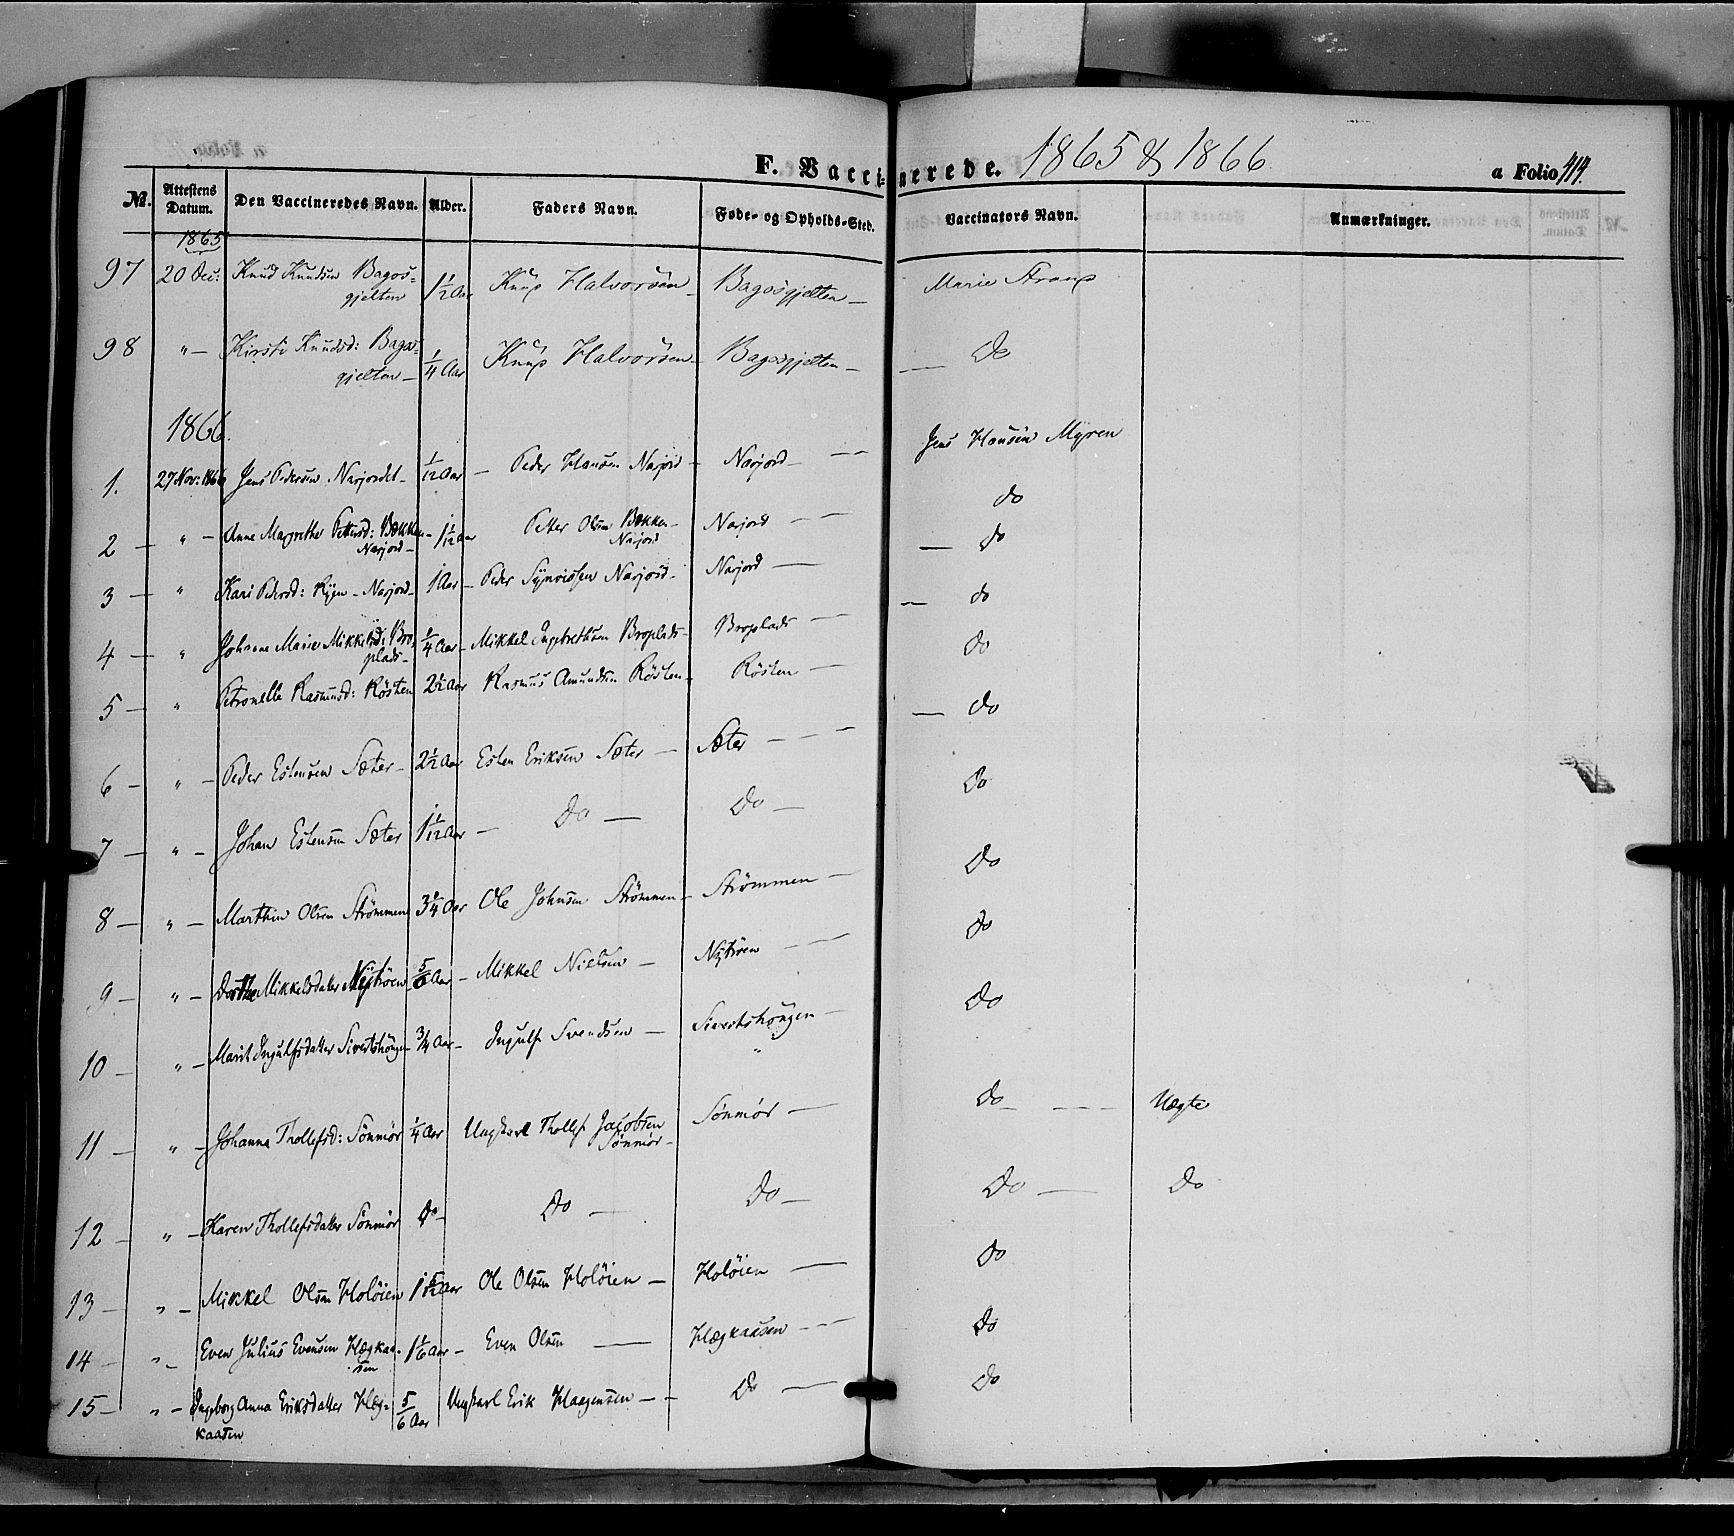 F. Vaccinerede. 1865 & 1866 a Folio 414.
No. Attestens Datum. Den Vaccineredes Navn. Alder. Faders Navn. Føde- og Opholds-Sted. Vaccinators Navn. Anmærkninger.
1865
97 20 Dec: Knud Knudsen Bagos=
gjelten 1 1/2 Aar Knud Halvorsen Bagosgjelten — Marie Straup
98 " — Kirsti Knudsd: Bagos=
gjelten — 1/4 Aar Knud Halvorsen — Bagosgjelten — Do
1866.
1. 27 Nov: 1866 Jens Pedersen Narjordet — 1/12 Aar — Peder Hansen Narjord — Narjord — Jens Hansen Myren
2 — " — Anne Margrethe Pettersd: Bækken
Narjord — 1 1/12 Aar Petter Olsen Bækken
Narjord Narjord — — do
3 — " Kari Pedersd: Ryen — Narjord — 1 Aar — Peder Synvissen Narjord — Narjord — do
4 — " Johanne Marie Mikkelsd: Bro=
plads — 1/4 Aar — Mikkel Ingebrethsen Broplads — Broplads — do
5 — " Petronelle Rasmusd: Røsten 2 1/2 Aar Rasmus Amundsen Røsten — Røsten — do
6 — " — Peder Estensen Sæter — 2 1/2 Aar Esten Eriksen Sæter — Sæter — — — do
7 — " — Johan Estensen Sæter 1 1/12 Aar — Do — Do — Do
8 — " — Marthin Olsen Strømmen 3 1/4 Aar Ole Johnsen Strømmen — Strømmen — Do
9 — " — Dorthe Mikkelsdatter Nytrøen 5/6 Aar — Mikkel Nielsen — Nytrøen — — do
10 — " — Marit Ingulfsdatter Sivertshøugen 3/4 Aar — Ingulf Svendsen — Sivertshøugen — Do
11 — " — Johanna Thollefsd: Sönmör 1/4 Aar Ungkarl Thollef Jacobsen
Sönmör — Sönmör — Do — — — Uægte
12 — " — Karen Thollefsdatter Sönmör Do — Do — Do — Do — Do
13 — " — Mikkel Olsen Holøien 1 5/12 Aar Ole Olsen Holøien — Holøien — do
14 — " — Even Julius Evensen Hægkaa=
sen 1 1/6 Aar — Even Olsen — Hægkaasen — — — do
15 — " — Ingeborg Anna Eriksdatter Hæg=
kaasen 5/6 Aar Ungkarl Erik Haagensen — — Do — do